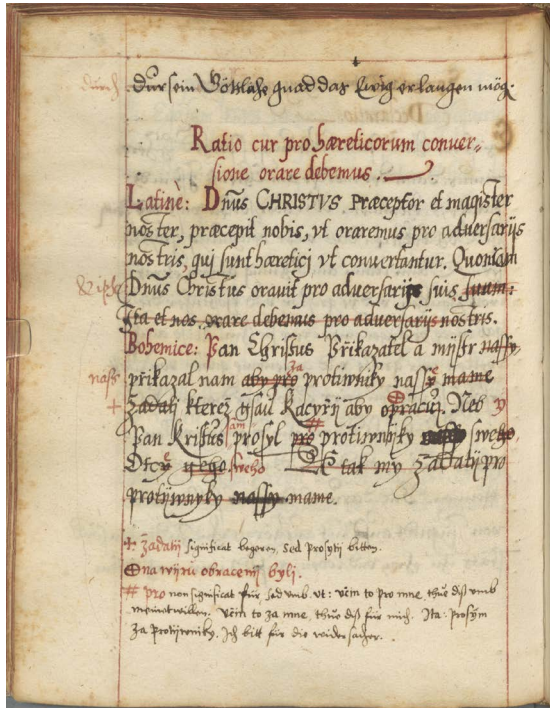 durch dur sein Göttliche gnad das Ewig erlangen mög.
Ratio cur pro hæreticorum conver=
sione orare debemus.
Latinè: Dnūs CHRISTVS Præceptor et magister
noster, præcepit nobis, vt oraremus pro adversarijs
nostris, qui sunt hæretici vt convertantur. Quoniam
& ipse Dnūs Christus oravit pro adversarijs suis
Ita et nos orare debemus pro adversarijs nostris.
Bohemice: Pan Christus Přikazatel a mijstr nassy
nass přikazal nam aby pro za protiwniky nassy mame
+ Žadati kterež gsau Kacyřij aby opracuij. Neb y
Pan Kristus sam prosyl pro # protiwnijky sweho
Otcy geho sweho A tak my žadatij pro
protijwnyky nassy mame.
+. žadatij significat begeren, sed prosytj bitten.
na wijru obracenij byli.
# pro non significat für sed vmb. vt: včin to pro mne, thue diß vmb
meinetwillen. Včin to za mne, thue diß für mich. Ita: prosým
za protijwniky. Ich bitt für die widersacher.